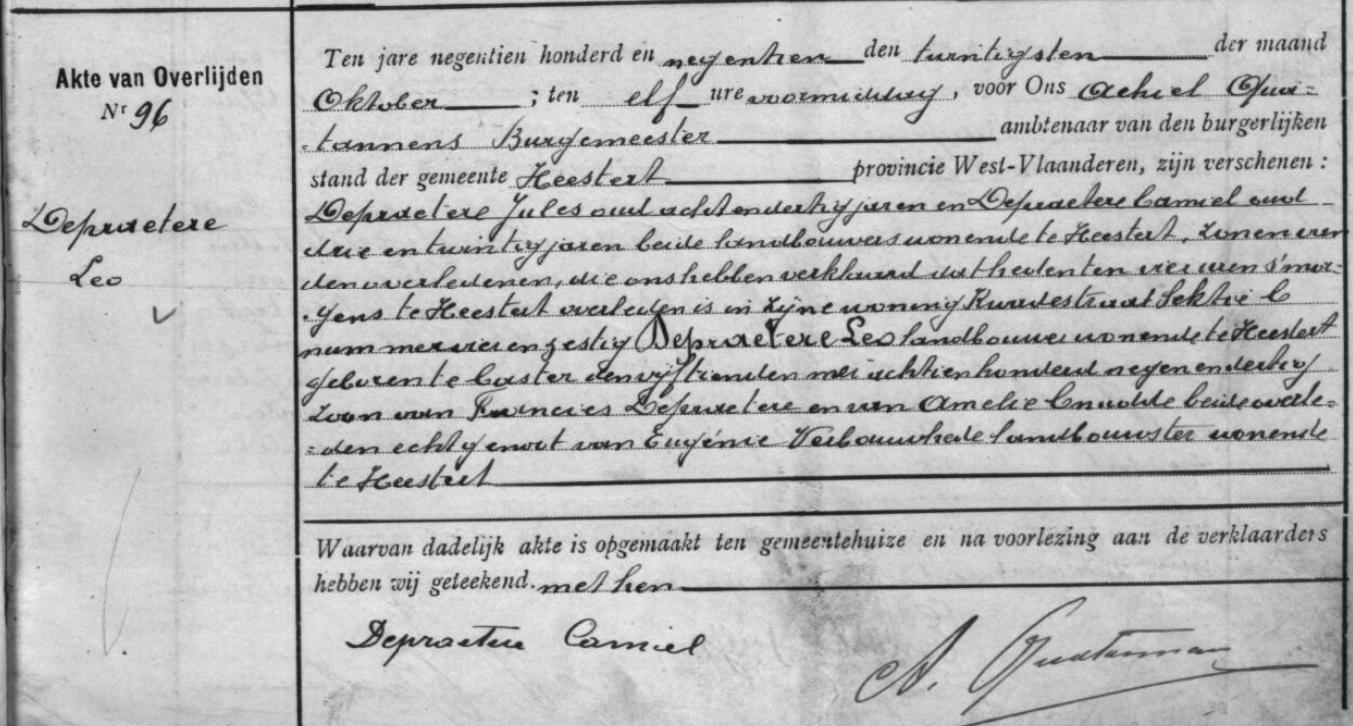 Akte van Overlijden
Nr 96
Depraetere
Leo
Ten jare negentien honderd en negentien den twintigsten der maand
Oktober ; ten elf ure voormiddag, voor Ons Achiel Qua-
-tannens Burgemeester ambtenaar van den burgerlijken
stand der gemeente Heestert provincie West-Vlaanderen, zijn verschenen :
Depraetere Jules oud achtendertig jaren en Depraetere Camiel oud
drie en twintig jaren beide landbouwers wonende te Heestert, zonen van
den overledenen, die ons hebben verklaard dat heden ten vier uren s'mor-
-gens te Heestert overleden is in zijne woning Kwadestraat Sektie C
nummer vier en zestig Depraetere Leo landbouwer wonende te Heestert
geboren te Caster den vijftienden mei achtien honderd negen en dertig
zoon van Francies Depraetere en van Amelie beide overle-
-den echtgenoot van Eugénie Verbauwhede landbouwster wonende
te Heestert
Waarvan dadelijk akte is opgemaakt ten gemeentehuize en na voorlezing aan de verklaarders
hebben wij geteekend. met hen
Depraetere Camiel
A.